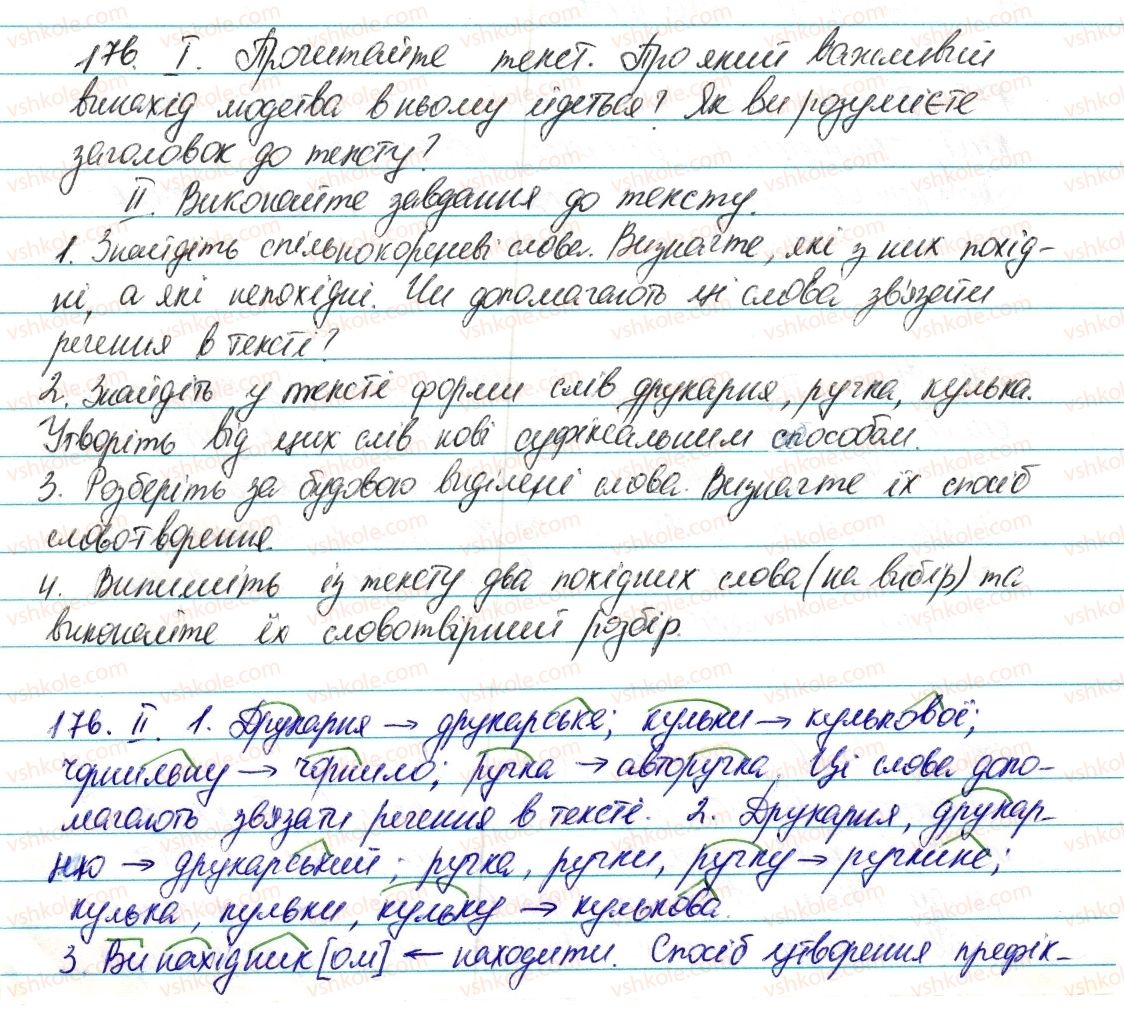 176. I. Прочитайте текст. Про який важливий
винахід людства в ньому йдеться? Як ви розумієте
заголовок до тексту?
II. Виконайте завдання до тексту.
1. Знайдіть спільнокореневі слова. Визначте, які з них похід-
ні, а які непохідні. Чи допомагають ці слова зв'язати
речення в тексті?
2. Знайдіть у тексті форми слів друкарня, ручка, кулька.
Утворіть від цих слів нові суфіксальним способом.
3. Розберіть за будовою виділені слова. Визначте їх спосіб
словотворення.
4. Випишіть із тексту два похідних слова (на вибір) та
виконайте їх словотвірний розбір.
176. II. 1. Друкарня → друкарське; кульки → кулькової;
чорнильну → чорнило; ручка → авторучка. Ці слова допо-
магають зв'язати речення в тексті. 2. Друкарня, друкар-
ню → друкарський; ручка, ручки, ручку → ручкине;
кулька, кульки, кульку → кулькова.
3. Винахідник[ом] ← находити. Спосіб утворення префік-